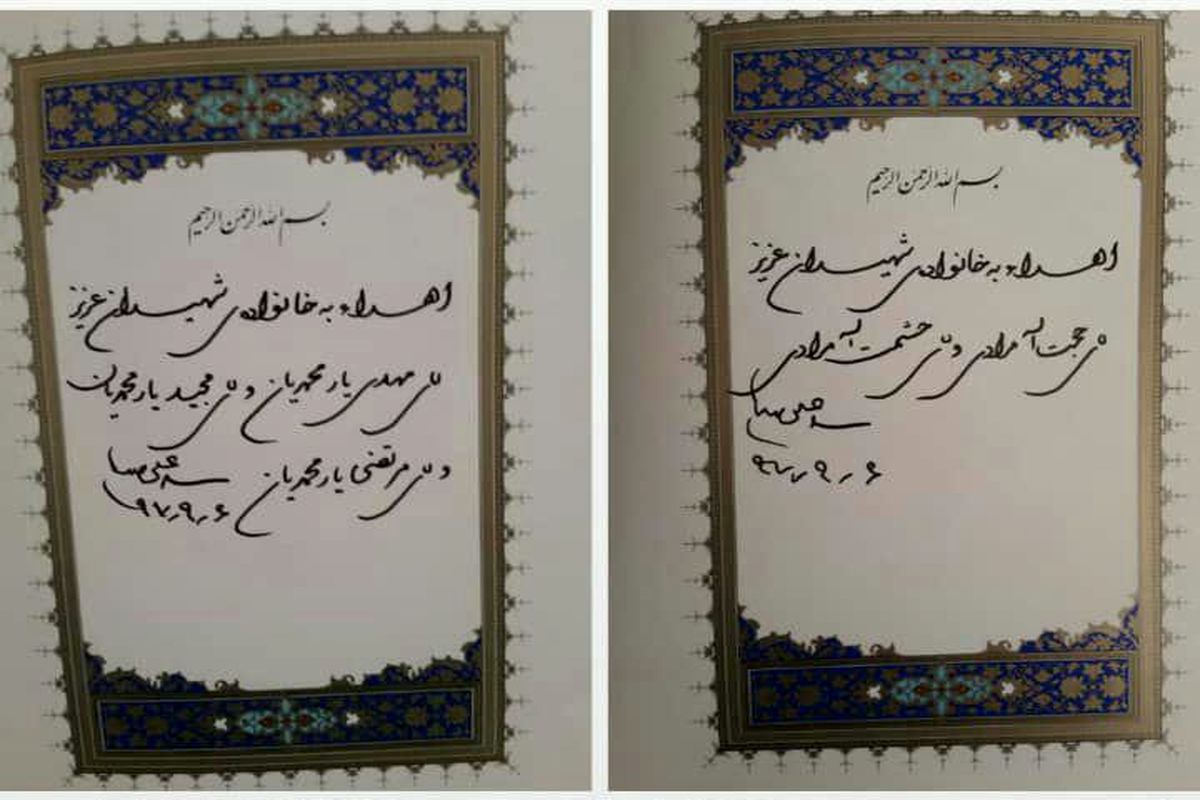 بسم الله الرحمن الرحیم
اهداء به خانواده‌ی شهیدان عزیز
مهدی یارمحمدیان و مجید یارمحمدیان
و مرتضی یارمحمدیان
سید علی
۹۷٫۹٫۶
بسم الله الرحمن الرحیم
اهداء به خانواده‌ی شهیدان عزیز
حجت اله مرادی و حشمت اله مرادی
سید علی
۹۷٫۹٫۶